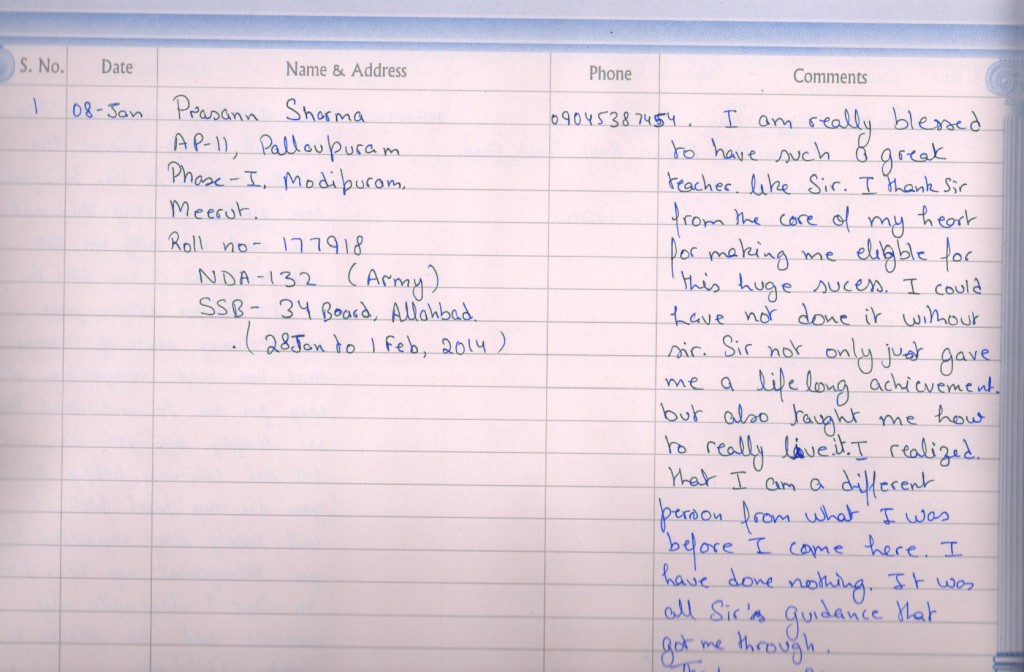 S. No. Date Name & Address Phone Comments
1 08-Jan Prasann Sharma 09045387454. I am really blessed
AP-11, Pallavpuram to have such a great
Phase-I, Modipuram, teacher. like Sir. I thank Sir
Meerut. from the core of my heart
Roll no- 177918 for making me eligble for
NDA-132 (Army) this huge sucess. I could
SSB- 34 Board, Allahbad. have not done it without
.(28Jan to 1 Feb, 2014) sir. Sir not only just gave
me a life long achievement.
but also taught me how
to really live it. I realized.
that I am a different
person from what I was
before I came here. I
have done nothing. It was
all Sir's guidance that
got me through.